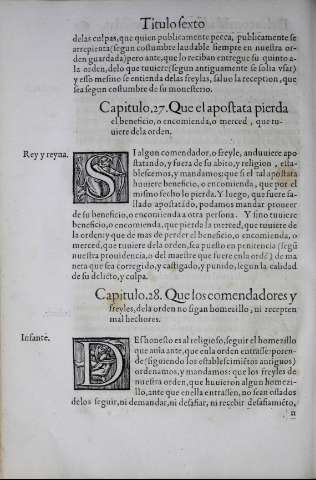 Titulo sexto
delas culpas, que quien publicamente pecca, publicamente se
arrepienta (segun costumbre laudable siempre en nuestra or-
den guardada) pero ante, que lo reciban entregue su quinto a-
la orden, delo que tuuiere (segun antiguamente se solia vsar)
y esso mesmo se entienda delas freylas, saluo la reception, que
sea segun costumbre de su monesterio.
Capitulo. 27. Que el apostata pierda
el beneficio, o encomienda, o merced, que tu-
uiere dela orden.
Rey y reyna.
SI algun comendador, o freyle, anduuiere apo
statando, y fuera de su abito, y religion, esta-
blescemos, y mandamos: que si el tal apostata
huuiere beneficio, o encomienda, que por el
mismo fecho lo pierda. Y luego, que fuere fa-
llado apostatãdo, podamos mandar proueer
de su beneficio, o encomienda a otra persona. Y sino tuuiere
beneficio, o encomienda, que pierda la merced, que tuuiere de
la orden: y que de mas de perder el beneficio, o encomienda, o
merced, que tuuiere dela orden, sea puesto en penitencia (segũ
nuestra prouidencia, o del maestre que fuere enla ordẽ) de ma
neta que sea corregido, y castigado, y punido, segun la calidad
de su delicto, y culpa.
Capitulo. 28. Que los comendadores y
freyles, dela orden no sigan homezillo, ni recepten
mal hechores.
Infante.
DEshonesto es al religioso, seguir el homezillo
que auia ante, que enla orden entrasse: poren-
de (siguiendo los establescimiẽtos antiguos)
ordenamos, y mandamos: que los freyles de
nuestra orden, que huuieron algun homezi-
llo, ante que enella entrassen, no sean ossados
delos seguir, ni demandar, ni desafiar, ni recebir desafiamiẽto,